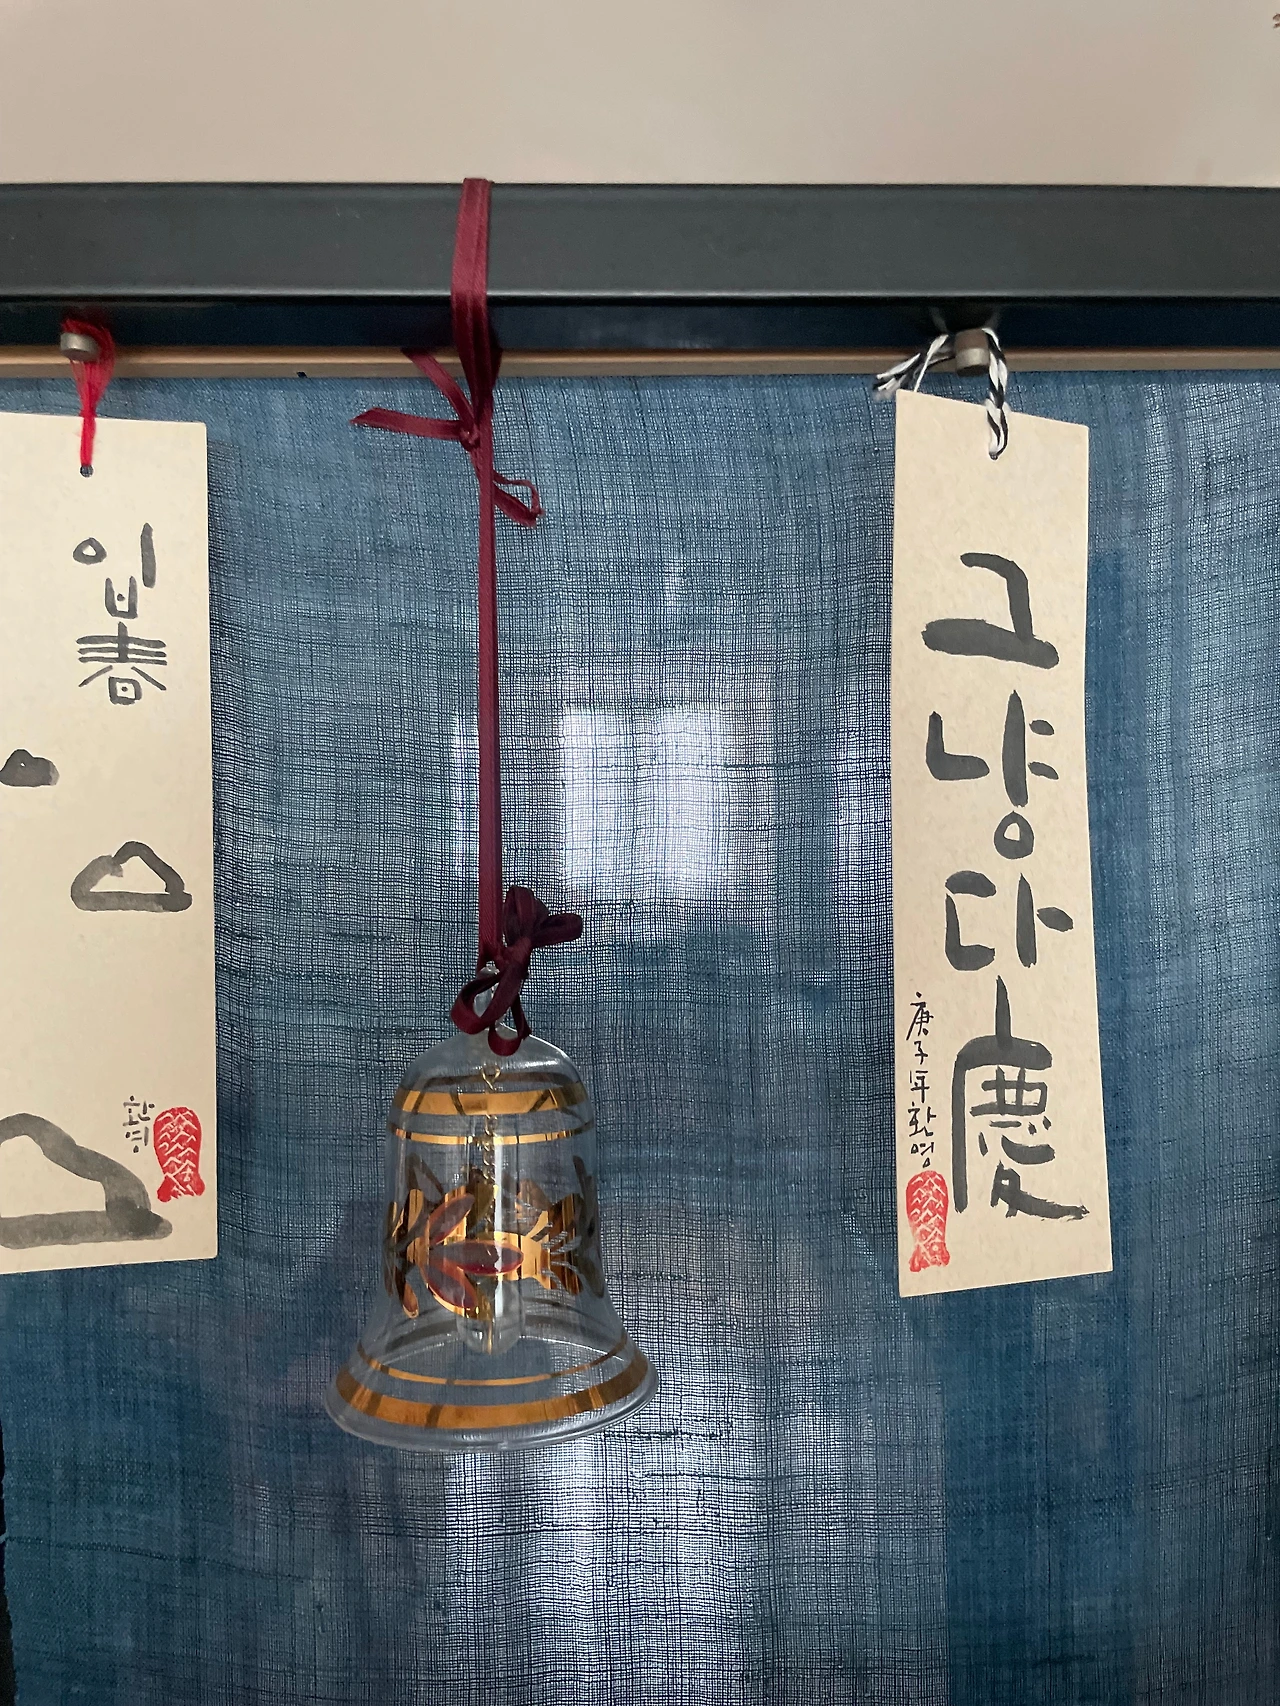 입春
환영
그냥다慶
庚子年환영